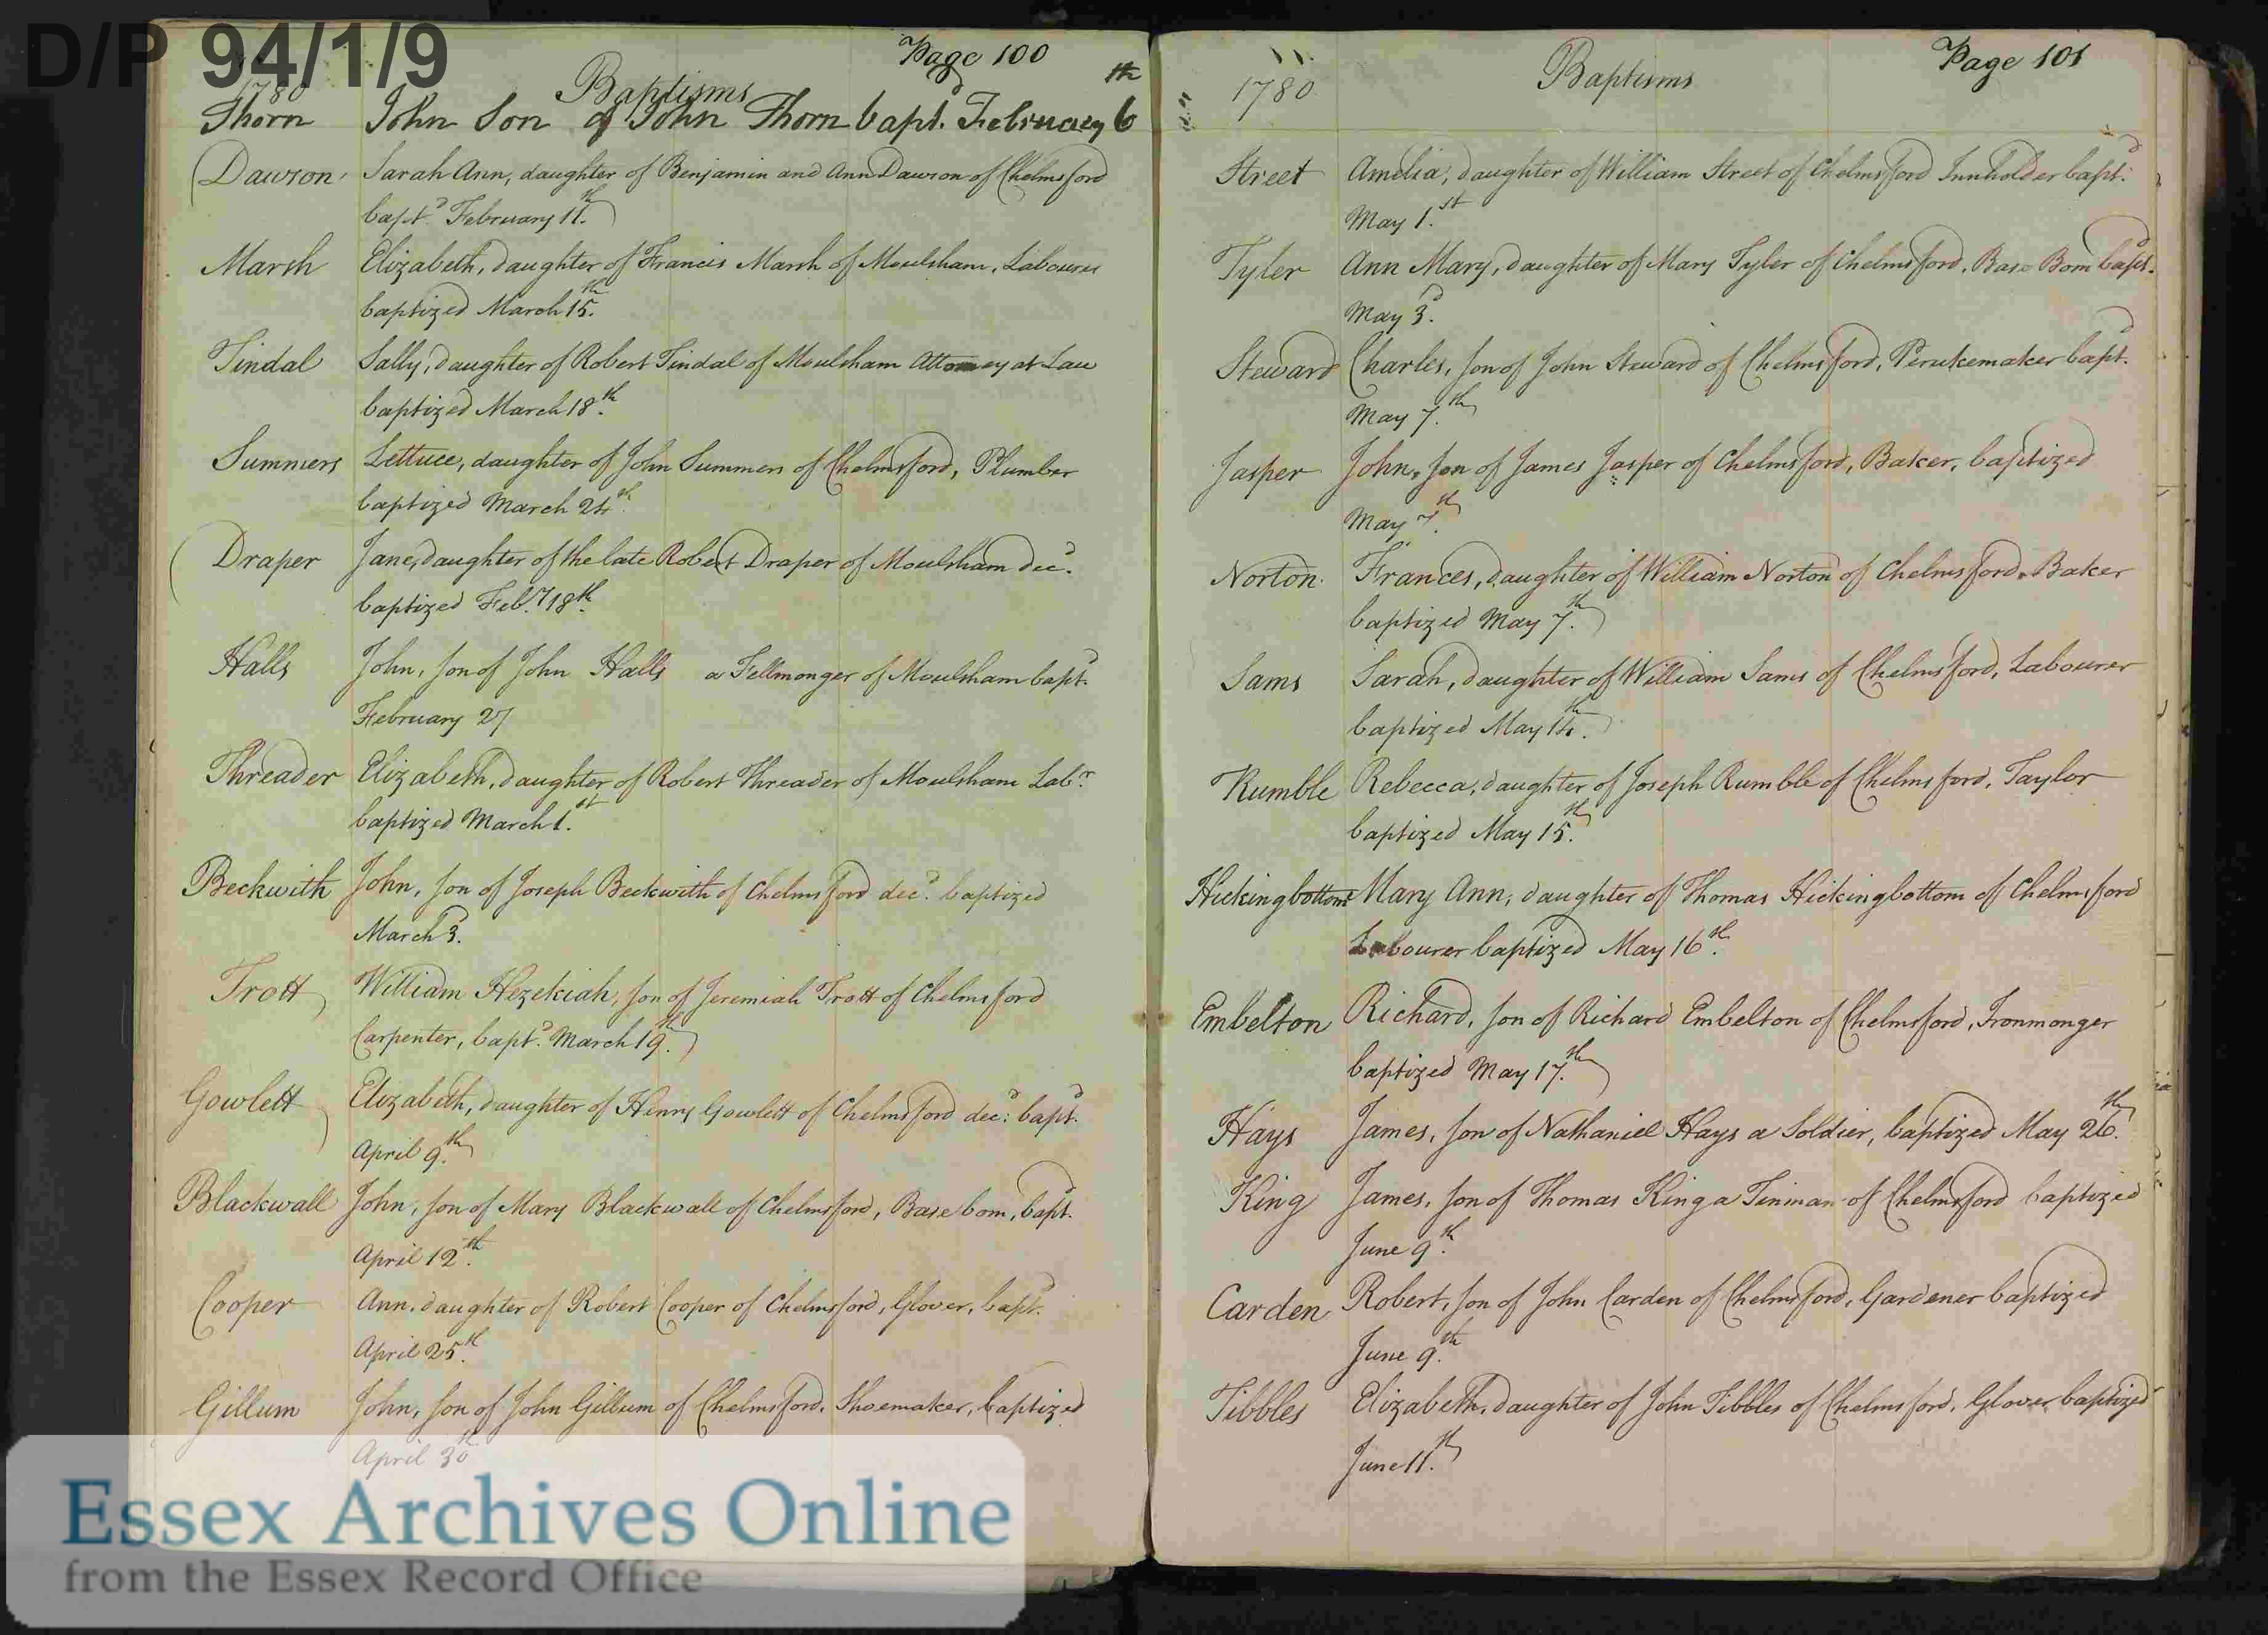 D/P 94/1/9
Page 100
1780 Baptisms
Thorn John Son of John Thorn bapt. February 6th
Dawson Sarah Ann, daughter of Benjamin and Ann Dawson of Chelmsford
bapt.d February 11.th
Marsh Elizabeth, daughter of Francis Marsh of Moulsham, Labourer
baptized March 15.th
Tindal Sally, daughter of Robert Tindal of Moulsham Attorney at Law
baptized March 18.th
Summers Lettuce, daughter of John Summers of Chelmsford, Plumber
baptized March 24.th
Draper Jane, daughter of the late Robert Draper of Moulsham dec.d
baptized Feb.ry 18.th
Halls John, son of John Halls a Fellmonger of Moulsham bapt.d
February 27
Threader Elizabeth, daughter of Robert Threader of Moulsham Lab.r
baptized March 1.st
Beckwith John, son of Joseph Beckwith of Chelmsford dec.d baptized
March 3.
Trott William Hezekiah, son of Jeremiah Trott of Chelmsford
Carpenter, bapt.d March 19.th
Gowlett Elizabeth, daughter of Henry Gowlett of Chelmsford dec.d bapt.d
April 9.th
Blackwall John, son of Mary Blackwall of Chelmsford, Base born, bapt.d
April 12.th
Cooper Ann, daughter of Robert Cooper of Chelmsford, Glover, bapt.d
April 25.th
Gillum John, son of John Gillum of Chelmsford, Shoemaker, baptized
April 30th
Essex Archives Online
from the Essex Record Office
Page 101
1780 Baptisms
Street Amelia, daughter of William Street of Chelmsford Innholder bapt.d
May 1.st
Tyler Ann Mary, daughter of Mary Tyler of Chelmsford, Base Born bapt.d
May 3.d
Steward Charles, son of John Steward of Chelmsford, Perukemaker bapt.d
May 7.th
Jasper John, son of James Jasper of Chelmsford, Baker, baptized
May 7.th
Norton Frances, daughter of William Norton of Chelmsford, Baker
baptized May 7.th
Sams Sarah, daughter of William Sams of Chelmsford, Labourer
baptized May 14.th
Rumble Rebecca, daughter of Joseph Rumble of Chelmsford, Taylor
baptized May 15.th
Hickingbottom Mary Ann, daughter of Thomas Hickingbottom of Chelmsford
Labourer baptized May 16.th
Embelton Richard, son of Richard Embelton of Chelmsford, Ironmonger
baptized May 17.th
Hays James, son of Nathaniel Hays a Soldier, baptized May 26.th
King James, son of Thomas King a Tinman of Chelmsford baptized
June 9.th
Carden Robert, son of John Carden of Chelmsford, Gardener baptized
June 9.th
Tibbles Elizabeth, daughter of John Tibbles of Chelmsford, Glover baptized
June 11.th